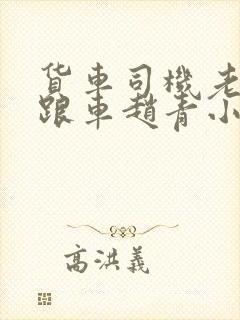 货车司機老
跟車趙青小
高洪義